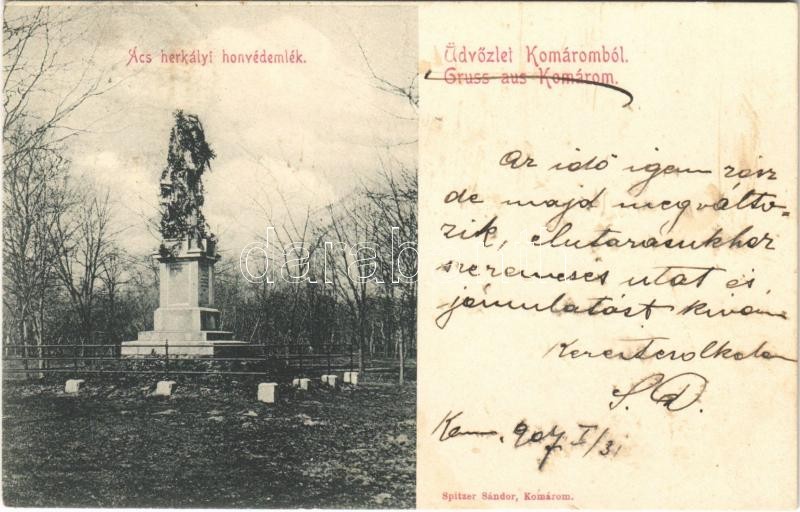 Ács herkályi honvédemlék.
Üdvőzlet Komáromból.
Gruss aus Komárom.
Az idő igen rósz
de majd megválto-
zik, elutazásukhoz
szerencsés utat és
jó mulatást kiván
S. D.
Kom. 907 I/31
Spitzer Sándor, Komárom.
darabanth